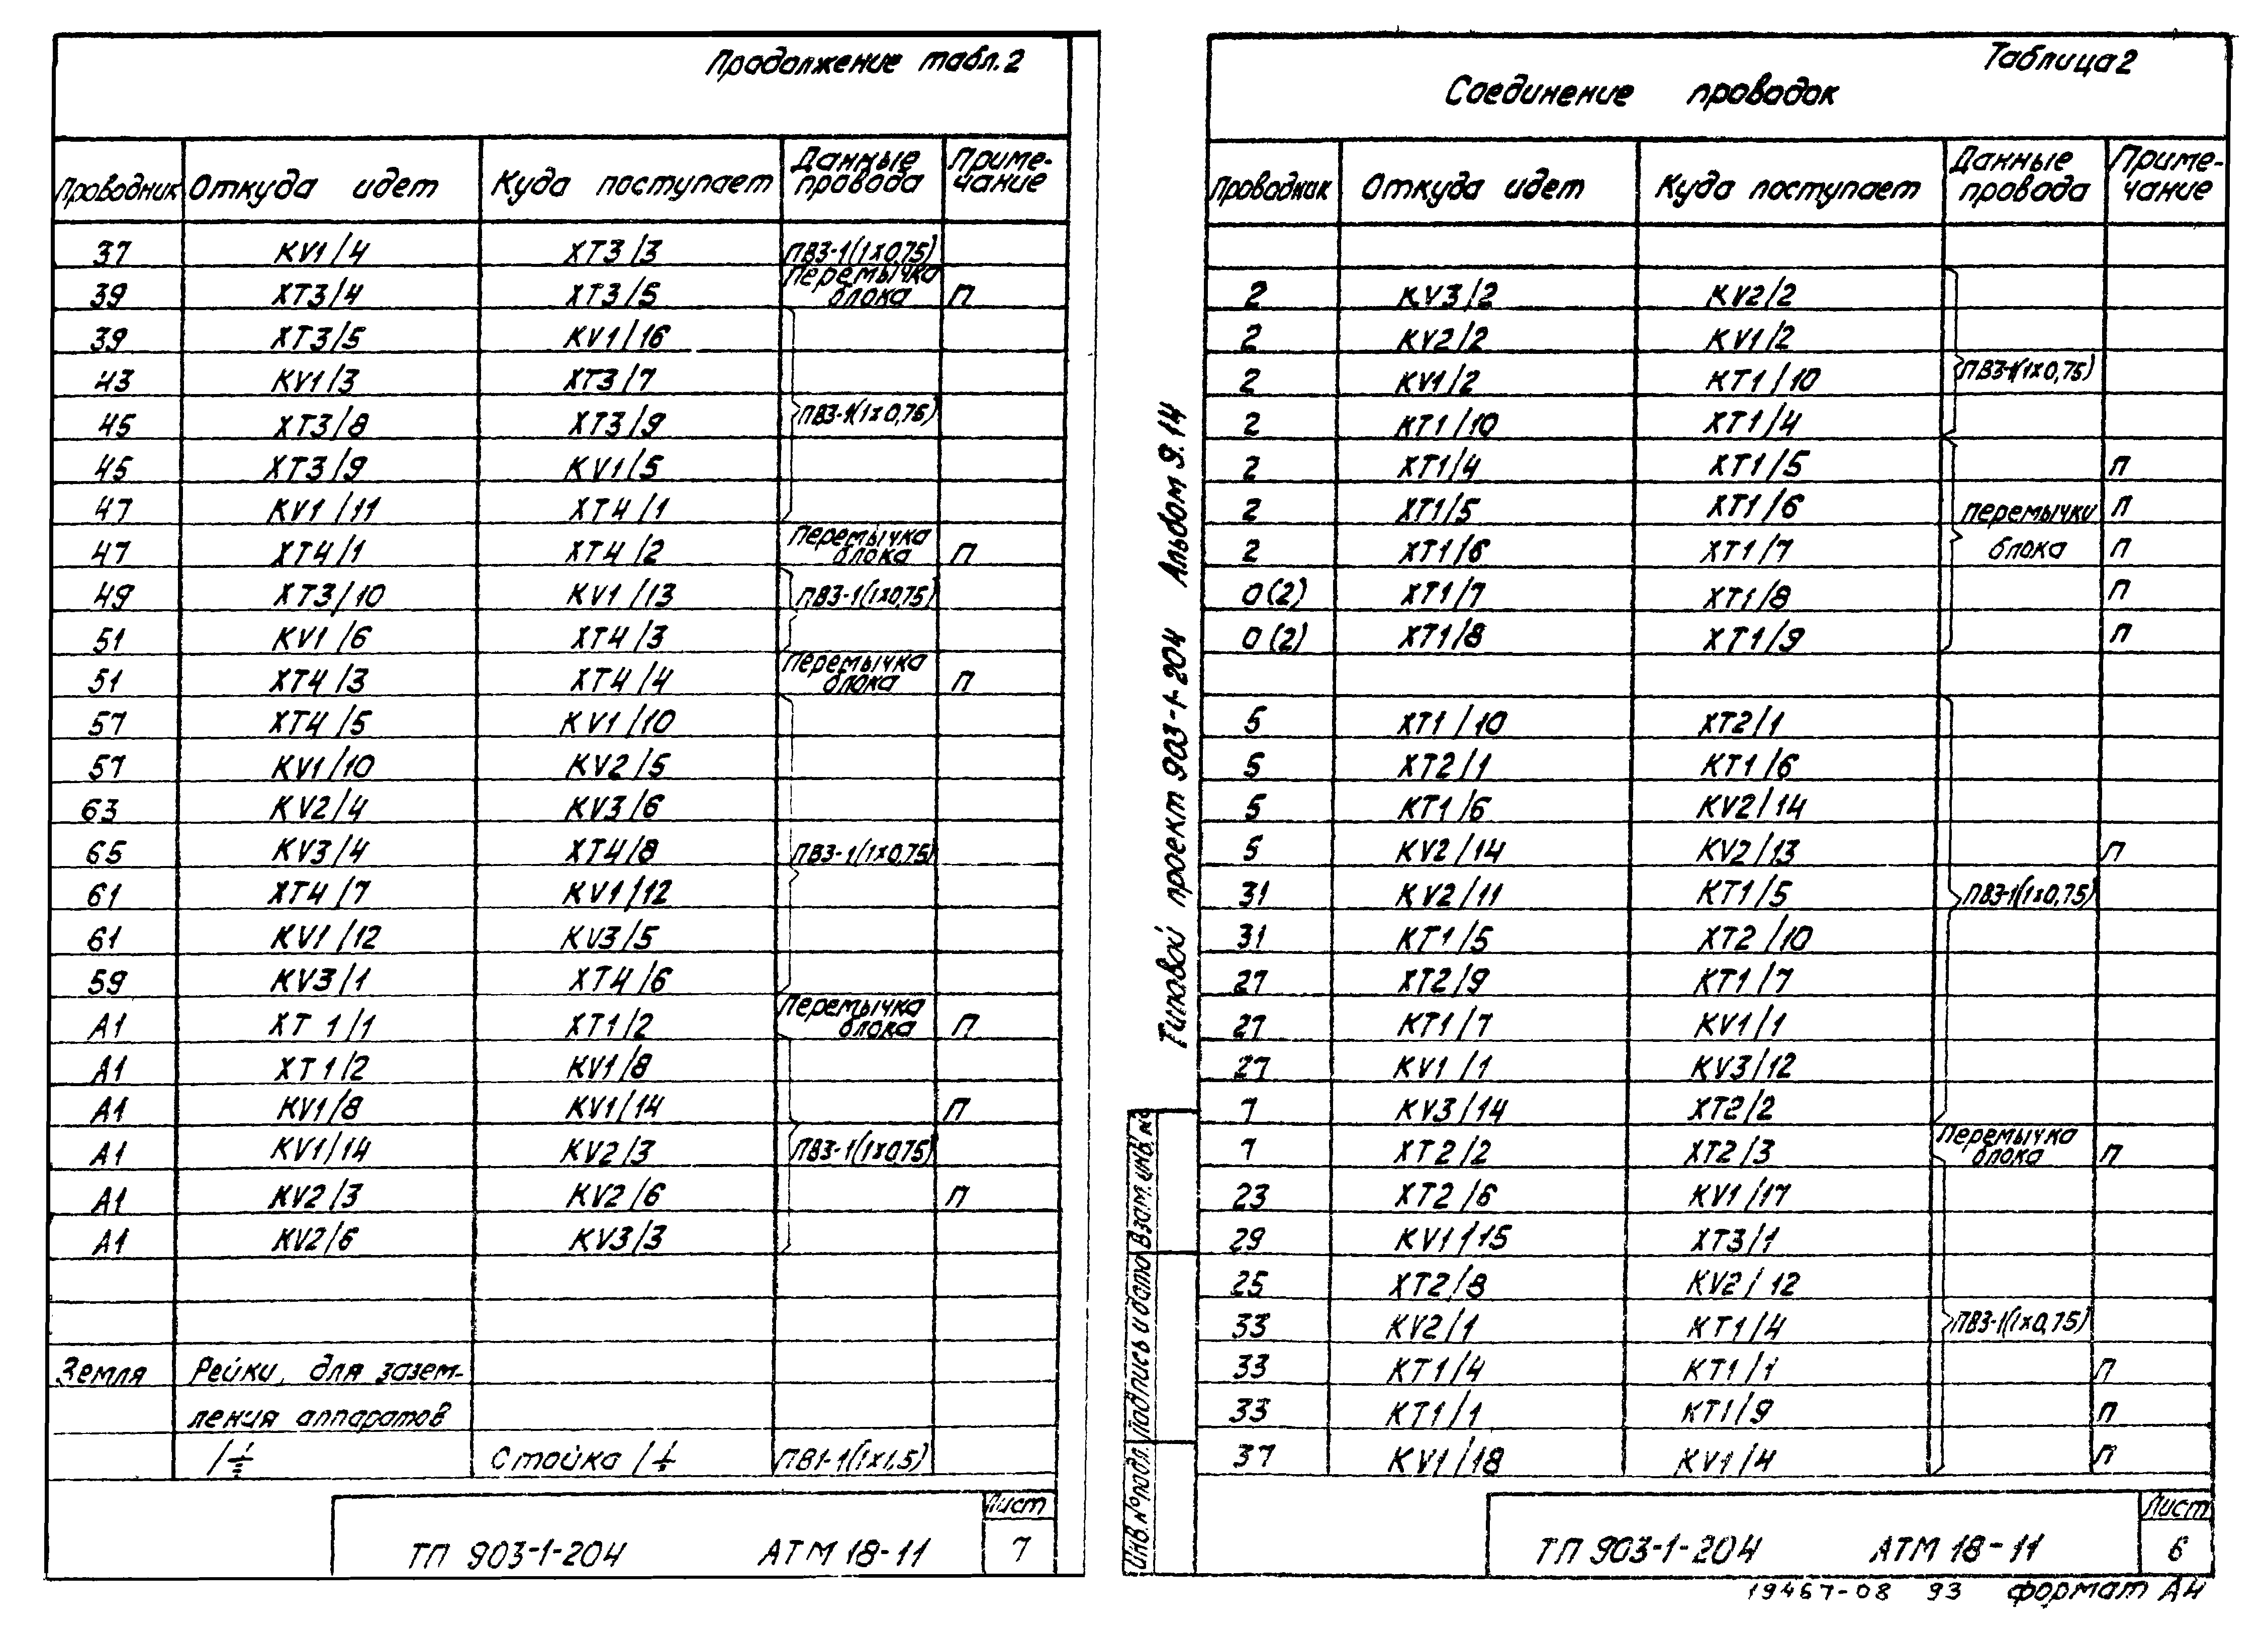 Продолжение табл. 2
Проводник Откуда идет Куда поступает Данные провода Приме-чание
37 KV1/4 XT3/3 ПВ3-1(1x0,75)
39 XT3/4 XT3/5 Перемычка блока П
39 XT3/5 KV1/16
43 KV1/3 XT3/7
45 XT3/8 XT3/9 ПВ3-1(1x0,75)
45 XT3/9 KV1/5
47 KV1/11 XT4/1
47 XT4/1 XT4/2 Перемычка блока П
49 XT3/10 KV1/13 ПВ3-1(1x0,75)
51 KV1/6 XT4/3
51 XT4/3 XT4/4 Перемычка блока П
57 XT4/5 KV1/10
57 KV1/10 KV2/5
63 KV2/4 KV3/6
65 KV3/4 XT4/8 ПВ3-1(1x0,75)
61 XT4/7 KV1/12
61 KV1/12 KV3/5
59 KV3/1 XT4/6
A1 XT1/1 XT1/2 Перемычка блока П
A1 XT1/2 KV1/8
A1 KV1/8 KV1/14 П
A1 KV1/14 KV2/3 ПВ3-1(1x0,75)
A1 KV2/3 KV2/6 П
A1 KV2/6 KV3/3
Земля Рейки, для зазем-
ления аппаратов
/⏚ Стойка /⏚ ПВ1-1(1x1,5)
ТП 903-1-204 АТМ 18-11 Лист 7
Таблица 2
Соединение проводок
Проводник Откуда идет Куда поступает Данные провода Приме-чание
2 KV3/2 KV2/2
2 KV2/2 KV1/2
2 KV1/2 KT1/10 ПВ3-1(1x0,75)
2 KT1/10 XT1/4
2 XT1/4 XT1/5 П
2 XT1/5 XT1/6 перемычки П
2 XT1/6 XT1/7 блока П
0(2) XT1/7 XT1/8 П
0(2) XT1/8 XT1/9 П
5 XT1/10 XT2/1
5 XT2/1 KT1/6
5 KT1/6 KV2/14
5 KV2/14 KV2/13 П
31 KV2/11 KT1/5 ПВ3-1(1x0,75)
31 KT1/5 XT2/10
27 XT2/9 KT1/7
27 KT1/7 KV1/1
27 KV1/1 KV3/12
7 KV3/14 XT2/2
7 XT2/2 XT2/3 Перемычка блока П
23 XT2/6 KV1/17
29 KV1/15 XT3/1
25 XT2/8 KV2/12
33 KV2/1 KT1/4 ПВ3-1(1x0,75)
33 KT1/4 KT1/1 П
33 KT1/1 KT1/9 П
37 KV1/18 KV1/4 П
ТП 903-1-204 АТМ 18-11 Лист 6
Типовой проект 903-1-204 Альбом 9.14
Инв.№подл. Подпись и дата Взам.инв.№
19467-08 93 формат А4